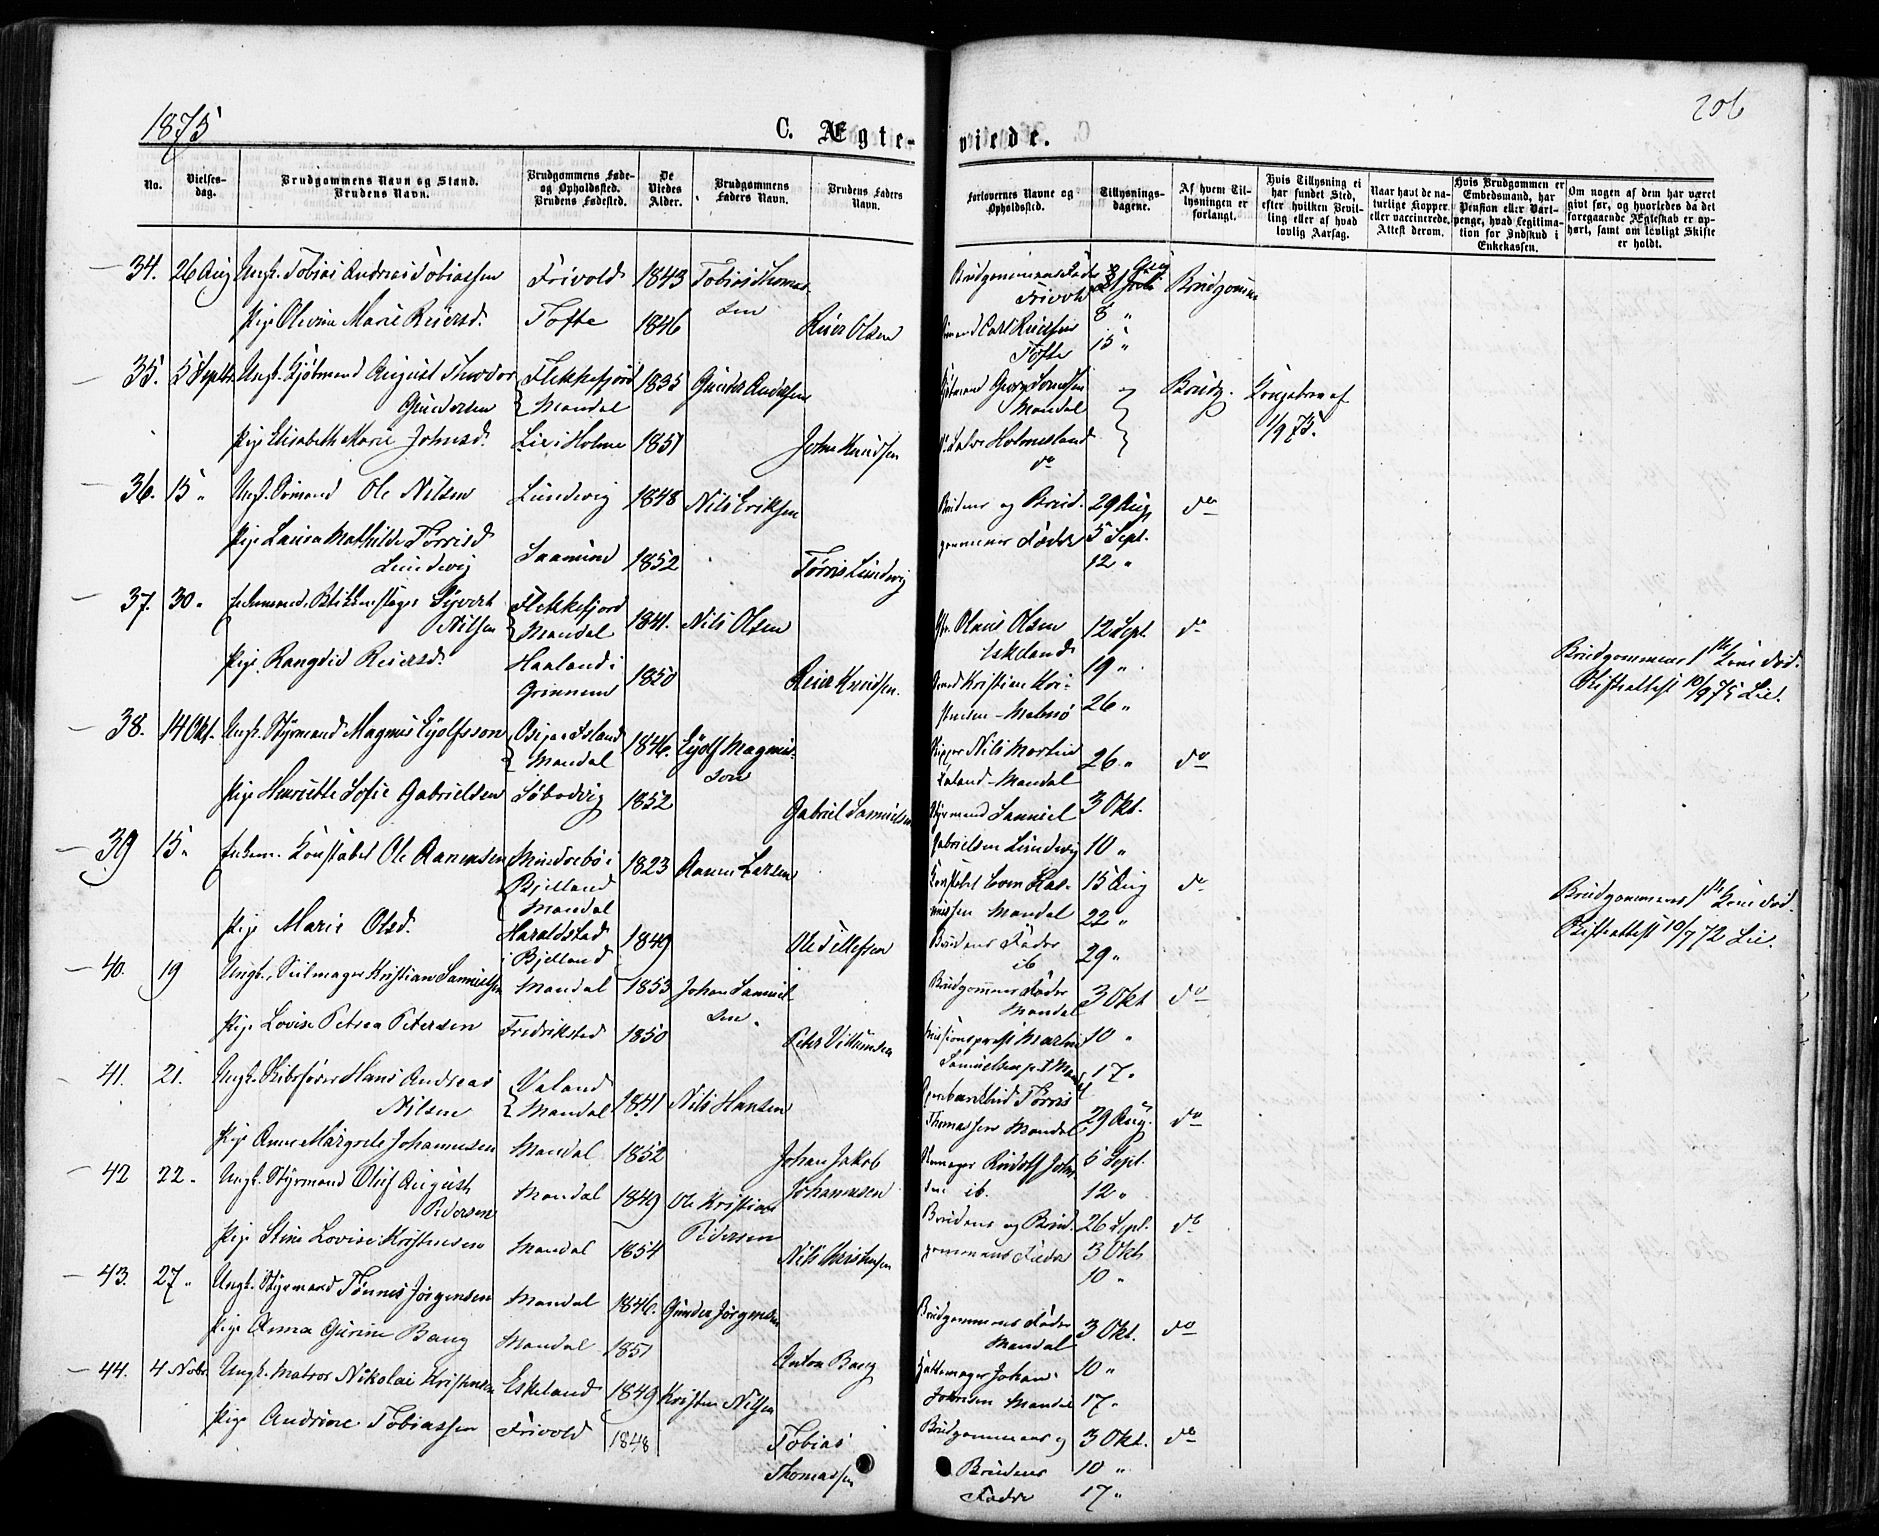 1875
C. Ægteviede.
206
No.
Vielsesdag.
Brudgommens Navn og Stand.
Brudens Navn.
Brudgommens Føde- og Opholdssted.
Brudens Fødested.
De Viedes Alder.
Brudgommens Faders Navn.
Brudens Faders Navn.
Forlovernes Navne og Opholdssted.
Tillysningsdagene.
Af hvem Tillysningen er forlangt.
Hvis Tillysning ei har fundet Sted, efter hvilken Bevilling eller af hvad lovlig Aarsag.
Naar havt de naturlige Kopper eller vaccinerede, Attest derom.
Hvis Brudgommen er Embedsmand, har Pension eller Vartpenge, hvad Legitimation for Indskud i Enkekassen.
Om nogen af dem har været givt før, og hvorledes da det foregaaende Ægteskab er ophørt, samt om lovligt Skifte er holdt.
34. 26 Aug Ungk. Tobias Andreas Tobiassen Frivold 1843 Tobias Thomassen
Pige Olevine Marie Reiersd. Tofte 1846 Reier Olsen
Brudgommens Fader Frivold 1 Aug Brudgommen
Carl Reiersen Tofte 8 " 15 "
35. 5 Septbr. Ungk. Kjøbmand August Theodor Gundersen Flekkefjord Mandal 1835 Gunder Andersen
Pige Elisabeth Marie Johnsd. Lie i Holme 1851 John Knudsen
Kjøbmand Georg Mandal Brudg. Kongebrev af 1/9 75.
Holmesland do
36. 15 " Ungk. Ole Nilsen Lundevig 1848 Nils Eriksen
Pige Laura Mathilde Tørrisd. Lundevig Saamund 1852 Tørris Lundevig
Brudens og Brudgommens Fædre 29 Aug. 5 Sept. 12 " do
37. 30 " Enkemand, Blikkenslager Syvert Nilsen Flekkefjord Mandal 1841. Nils Olsen
Pige Rangdid Reiersd. Haaland i Grinnum 1850 Reier Knudsen.
Olaus Olsen Eskeland 12 Sept. do
Kristian Kristensen - Malmø 19 " 26 "
Brudgommens 1ste Kone død.
Skifteattest 10/9 75 Lie.
38. 14 Okt. Ungk. Styrmand Magnus Eyolfsson Island Mandal 1846. Eyolf Magnusson
Pige Henriette Sofie Gabrielsen 1852 Gabriel Samuelsen
Skipper Nils Martin Mandal 26 " do
Styrmand Samuel Gabrielsen Lundevig 3 Okt. 10 "
39 15 " Enkem. Konstabel Ole Aanensen Bjelland Mandal 1823 Aanen Larsen
Pige Marie Olsd. Haraldstad i Bjelland 1849 Ole Tellefsen
Konstabel Mandal 15 Aug 22 " do
Brudens Fader ib 29 "
Brudgommens 1ste Kone død.
Skifteattest 10/7 72 Lie.
40. 19 Ungk. Seilmager Kristian Samuelsen Mandal 1853 Johan Samuelsen.
Pige Lovise Petrea Petersen Fredrikstad 1850
Brudgommens Fader Mandal 3 Okt do
Missionsprest Martin Samuelsen 10 " 17 "
41. 21. Ungk. Skibsfører Hans Andreas Nilsen Valand Mandal 1841 Nils Hansen
Pige Anne Margrete Johannesen Mandal 1852 Johan Jakob Johannesen
Tørris Thomassen Mandal 29 Aug. do
Rudolf ib. 5 Sept. 12 "
42 22. Ungk. Styrmand Oluf August Pedersen Mandal 1849 Ole Kristian Pedersen
Pige Stine Lovise Kristensen Mandal 1854 Nils Christensen
Brudens og Brudgommens Fædre 26 Sept. 3 Okt. 10 " do
43. 27 " Ungk. Styrmand Tønnes Jørgensen Mandal 1846. Gunder Jørgensen
Pige Anna Gurine Bang Mandal 1851 Anton Bang
Brudgommens Fader Mandal 3 Okt. do
Hattemager Johan Mandal 10 " 17 "
44. 4 Novbr. Ungk. Matros Nikolai Kristensen Eskeland 1849 Kristen Nilsen
Pige Andrine Tobiassen Frivold 1848 Tobias Thomassen
Brudgommens og Brudens Fædre 3 Okt. 10 " 17 " do